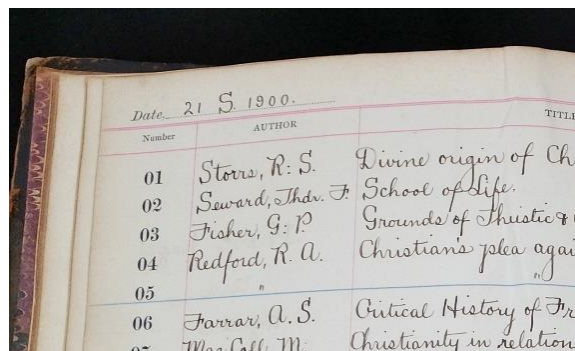 Date 21 S. 1900.
Number AUTHOR TITLE
01 Storrs, R: S. Divine origin of Ch
02 Seward, Thdr. F. School of Life.
03 Fisher, G: P. Grounds of Theistic &
04 Redford, R. A. Christian's plea agai
05 " "
06 Farrar, A. S. Critical History of Fr
MacColl, M. Christianity in relation